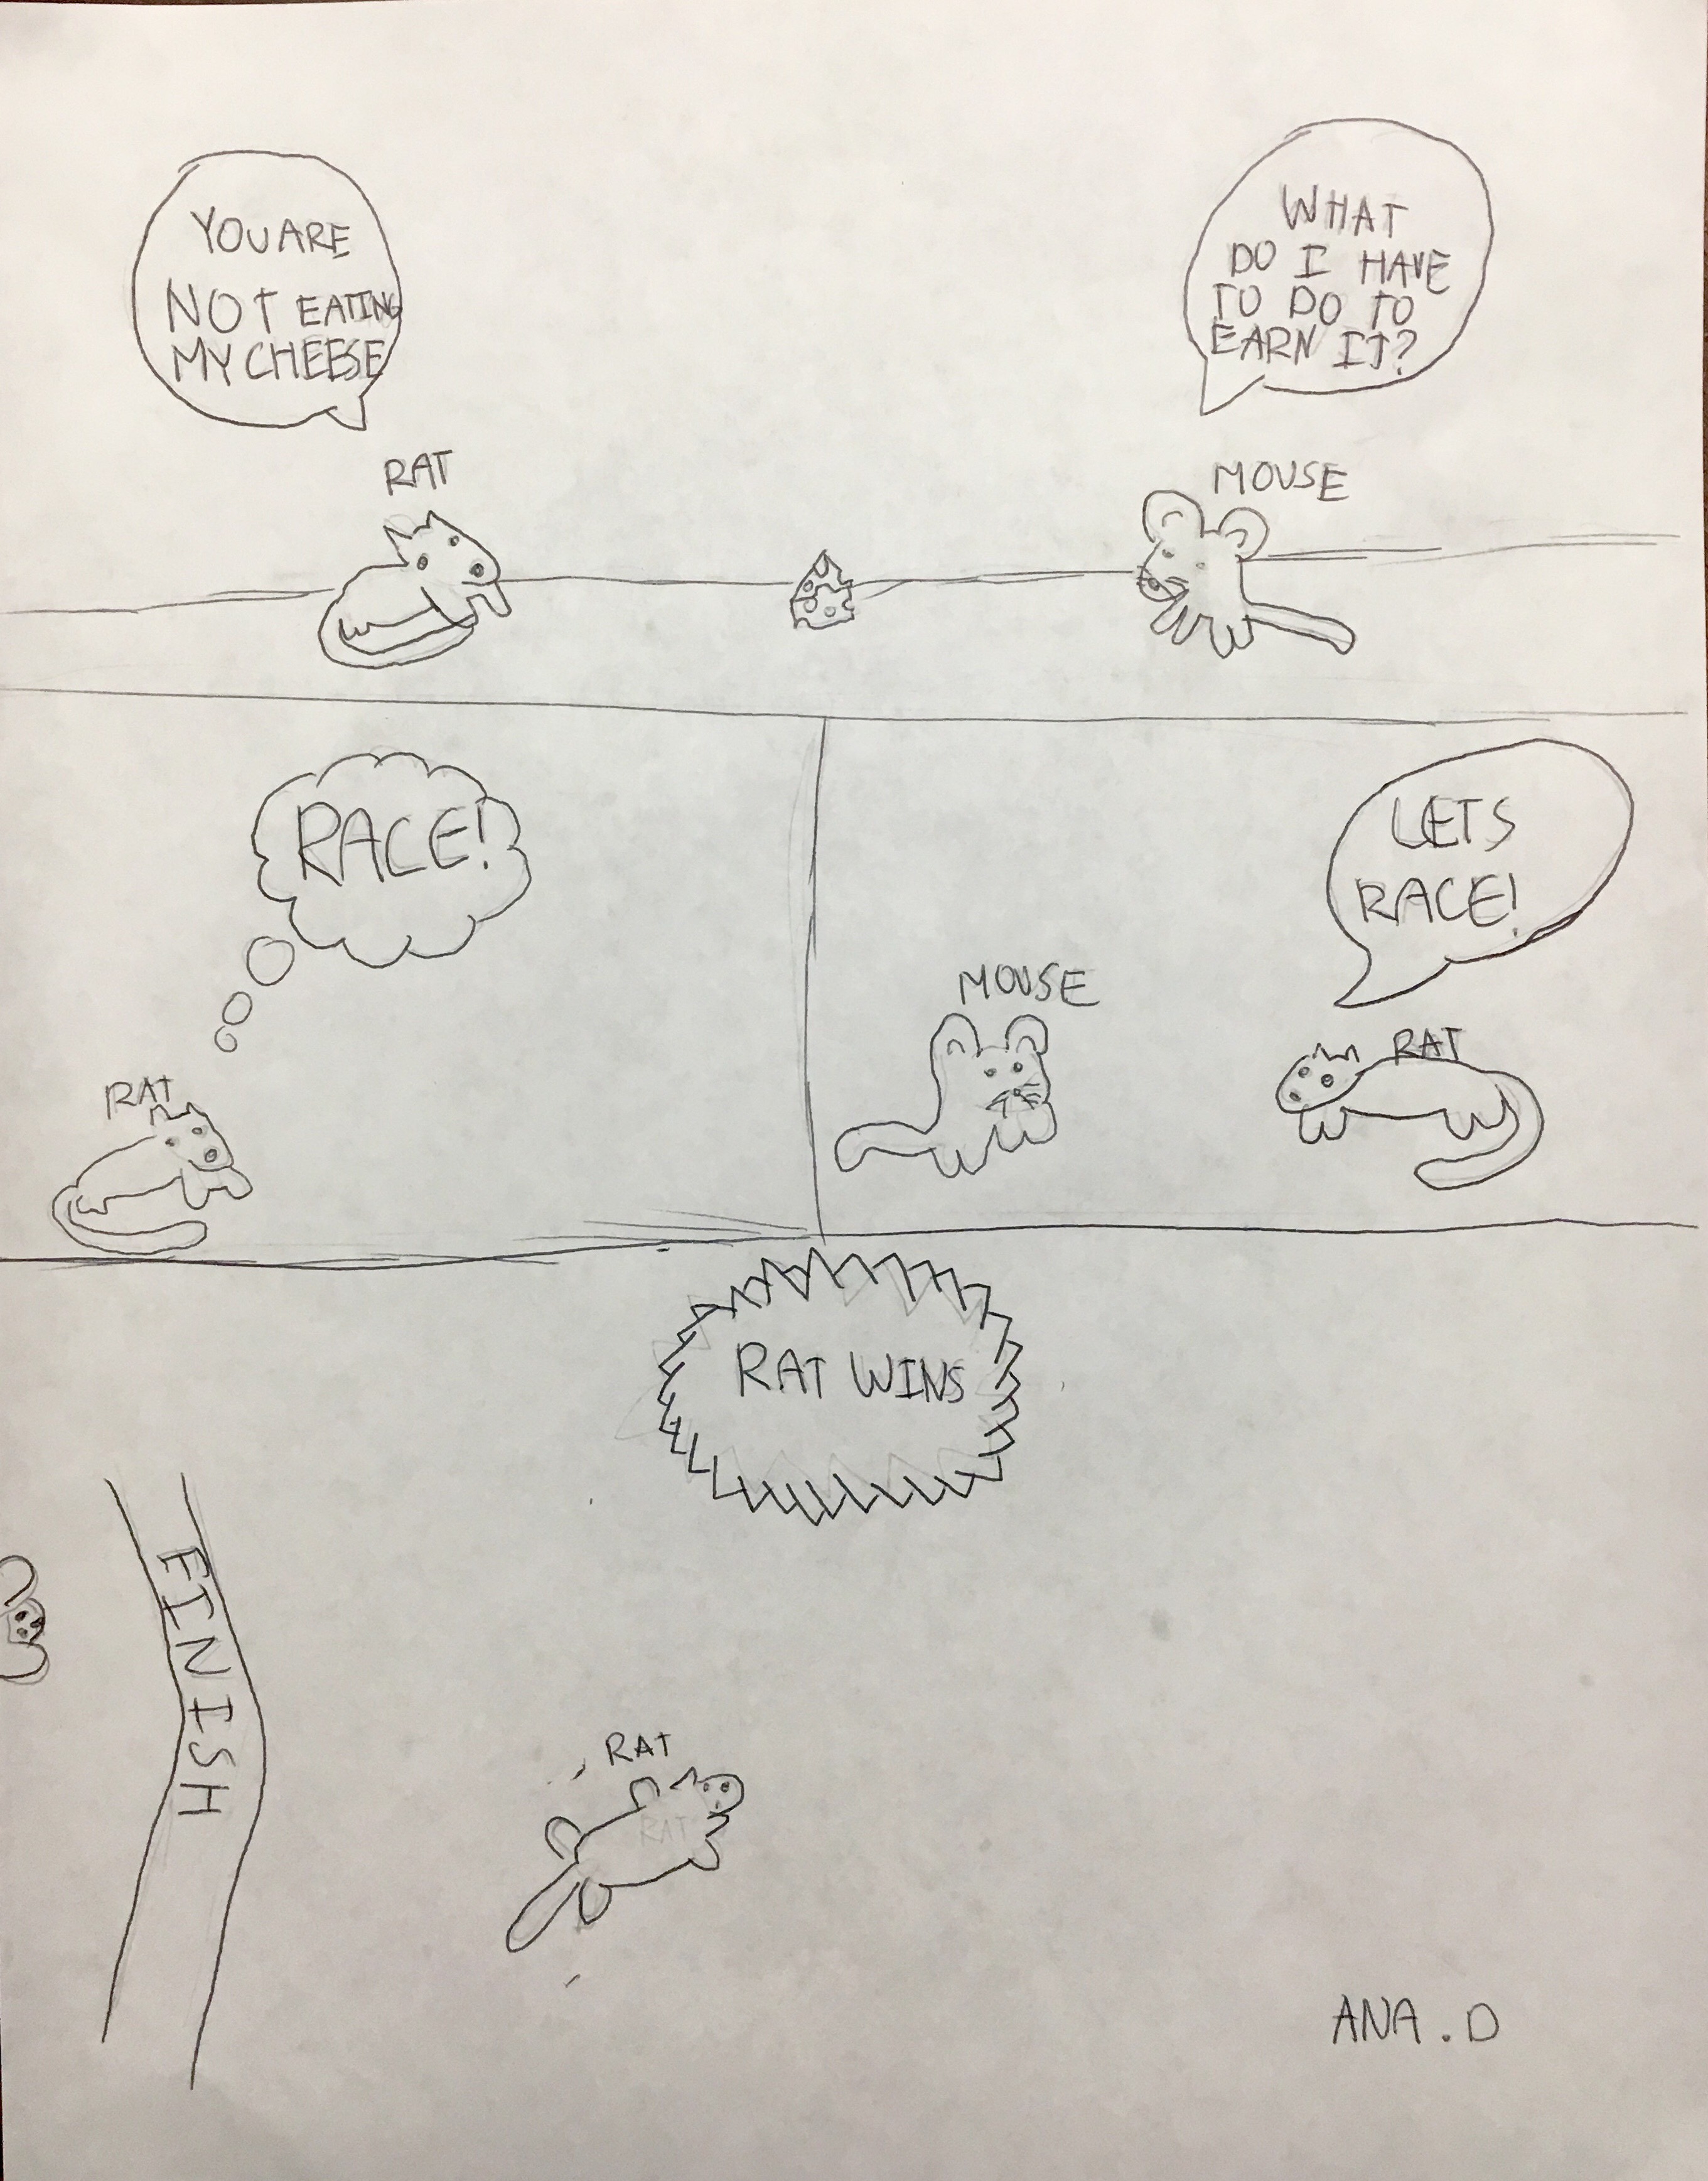 YOU ARE
NOT EATING
MY CHEESE
WHAT
DO I HAVE
TO DO TO
EARN IT?
RAT
MOUSE
RACE!
RAT
LETS
RACE!
MOUSE
RAT
RAT WINS
FINISH
RAT
RAT
ANA.D